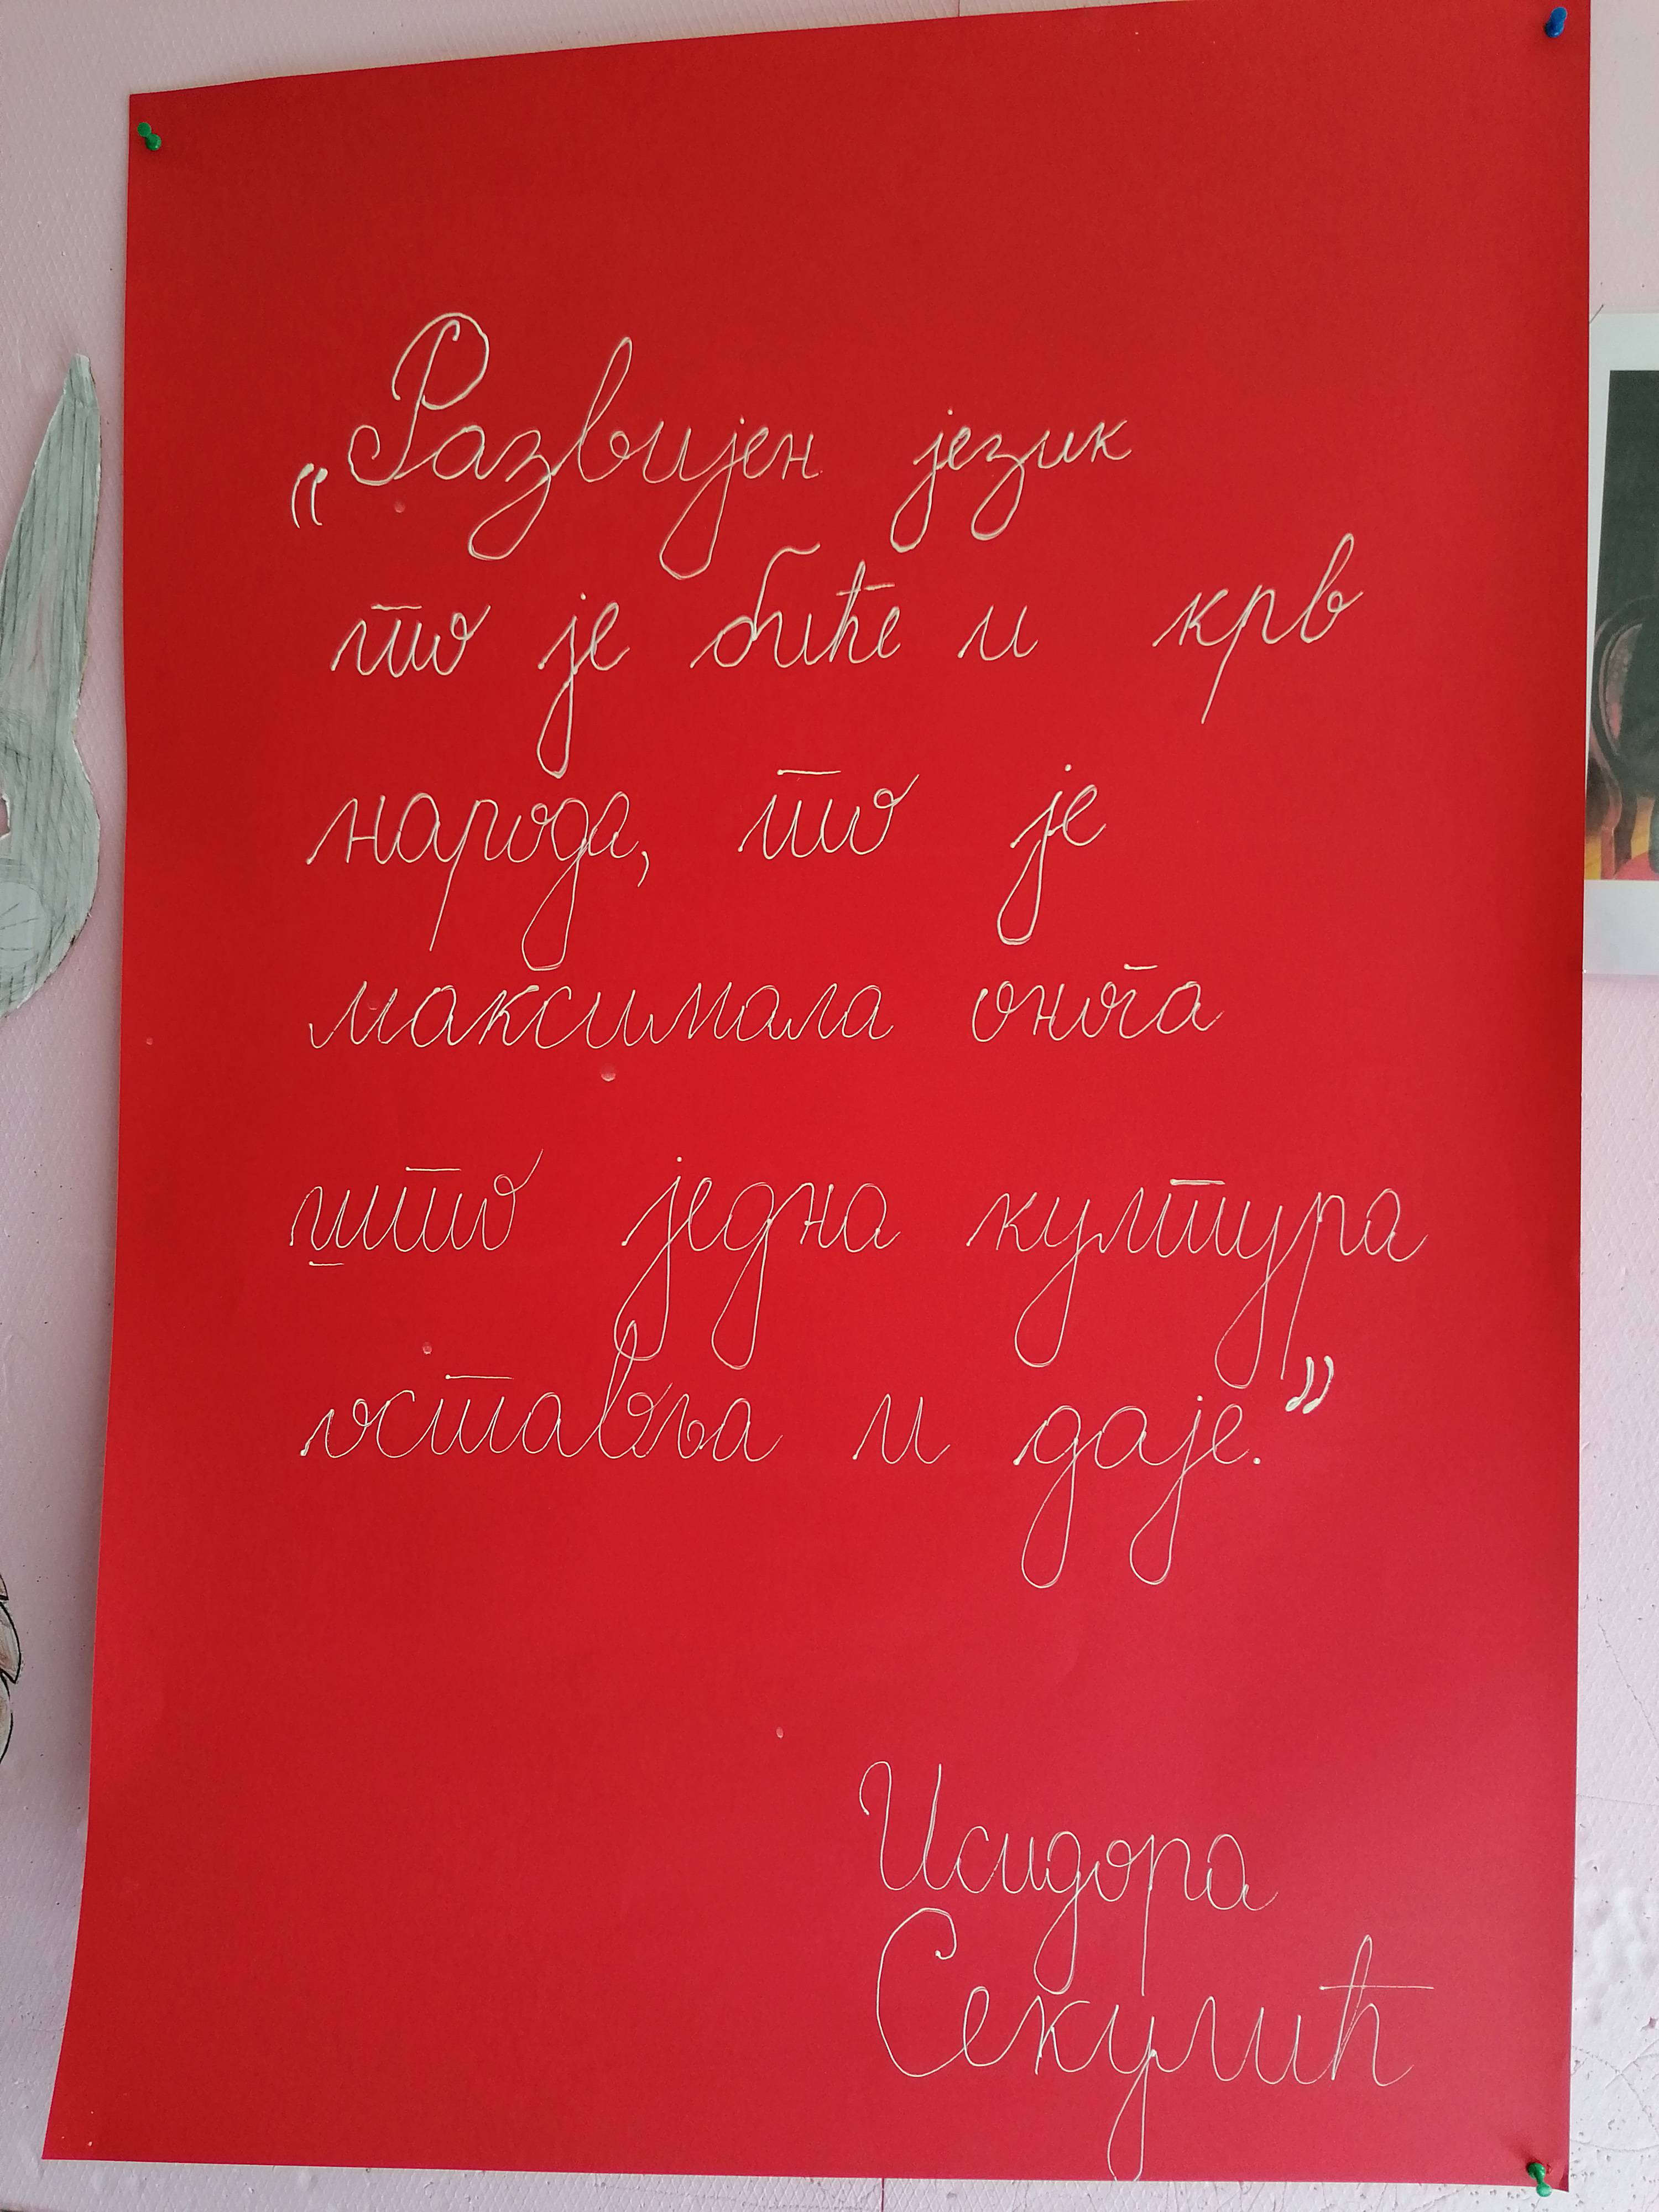 „Развијен језик
то је биће и крв
народа, то је
максимала онога
што једна култура
оставља и даје.”
Исидора
Секулић